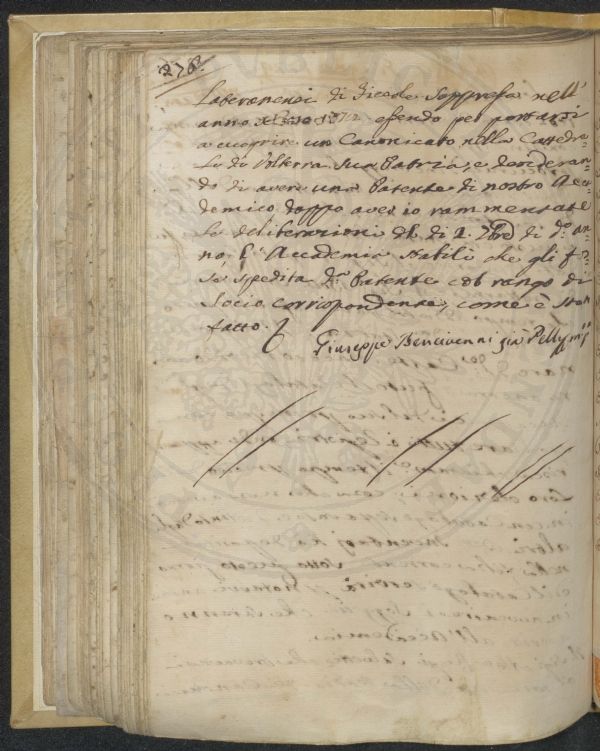 278.
Lateranensi di Fiesole soppressa nell'
anno 1778 essendo per portarsi
a cuoprire un Canonicato nella Cattedra-
le di Volterra sua Patria, e desideran-
do di avere una Patente di nostro Acca-
demico doppo aver io rammentate
le deliberazioni del dì 2. 7bre di do. an-
no l'Accademia stabilì che gli fos-
se spedita da. Patente col rango di
Socio corrispondente, come è stato
fatto.
Giuseppe Bencivenni già Pelli